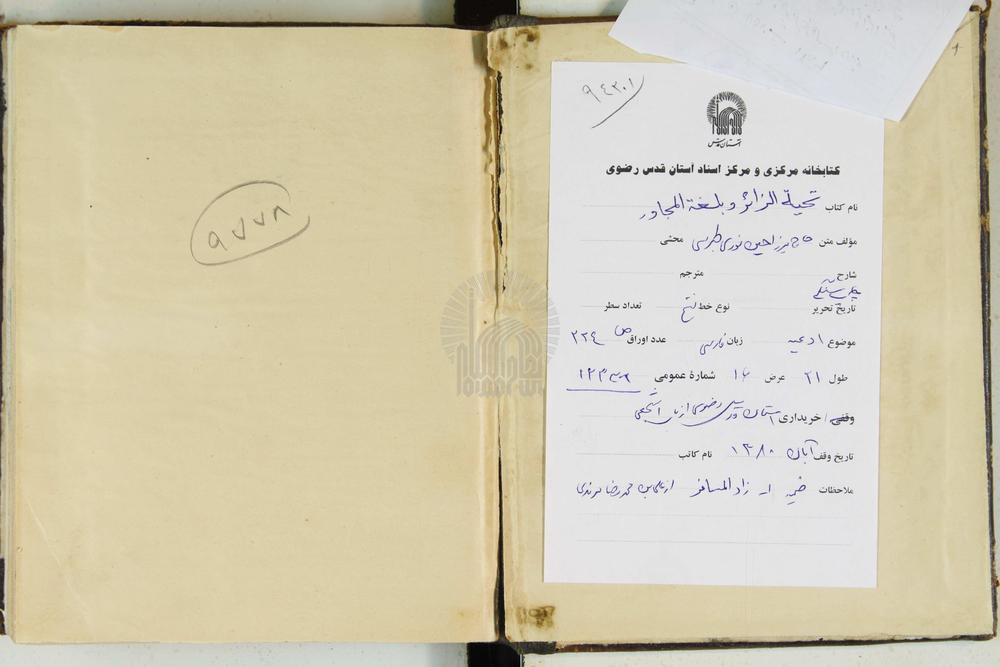 ۹۷۷۸
۹۴۳۰۱
آستان قدس
کتابخانه مرکزی و مرکز اسناد آستان قدس رضوی
نام کتاب تحیة الزائر و بلغة المجاور
مؤلف متن حاج میرزا حسین نوری طبرسی محشی
شارح مترجم
چاپ سنگی
تاریخ تحریر نوع خط نسخ تعداد سطر
موضوع ادعیه زبان فارسی عدد اوراق ۳۳۴ ص
طول ۲۱ عرض ۱۶ شمارهٔ عمومی
وقفی / خریداری آستان قدس رضوی از
تاریخ وقف آبان ۱۳۸۰ نام کاتب
ملاحظات ضمیمه زاد المسافر از محمد رضا